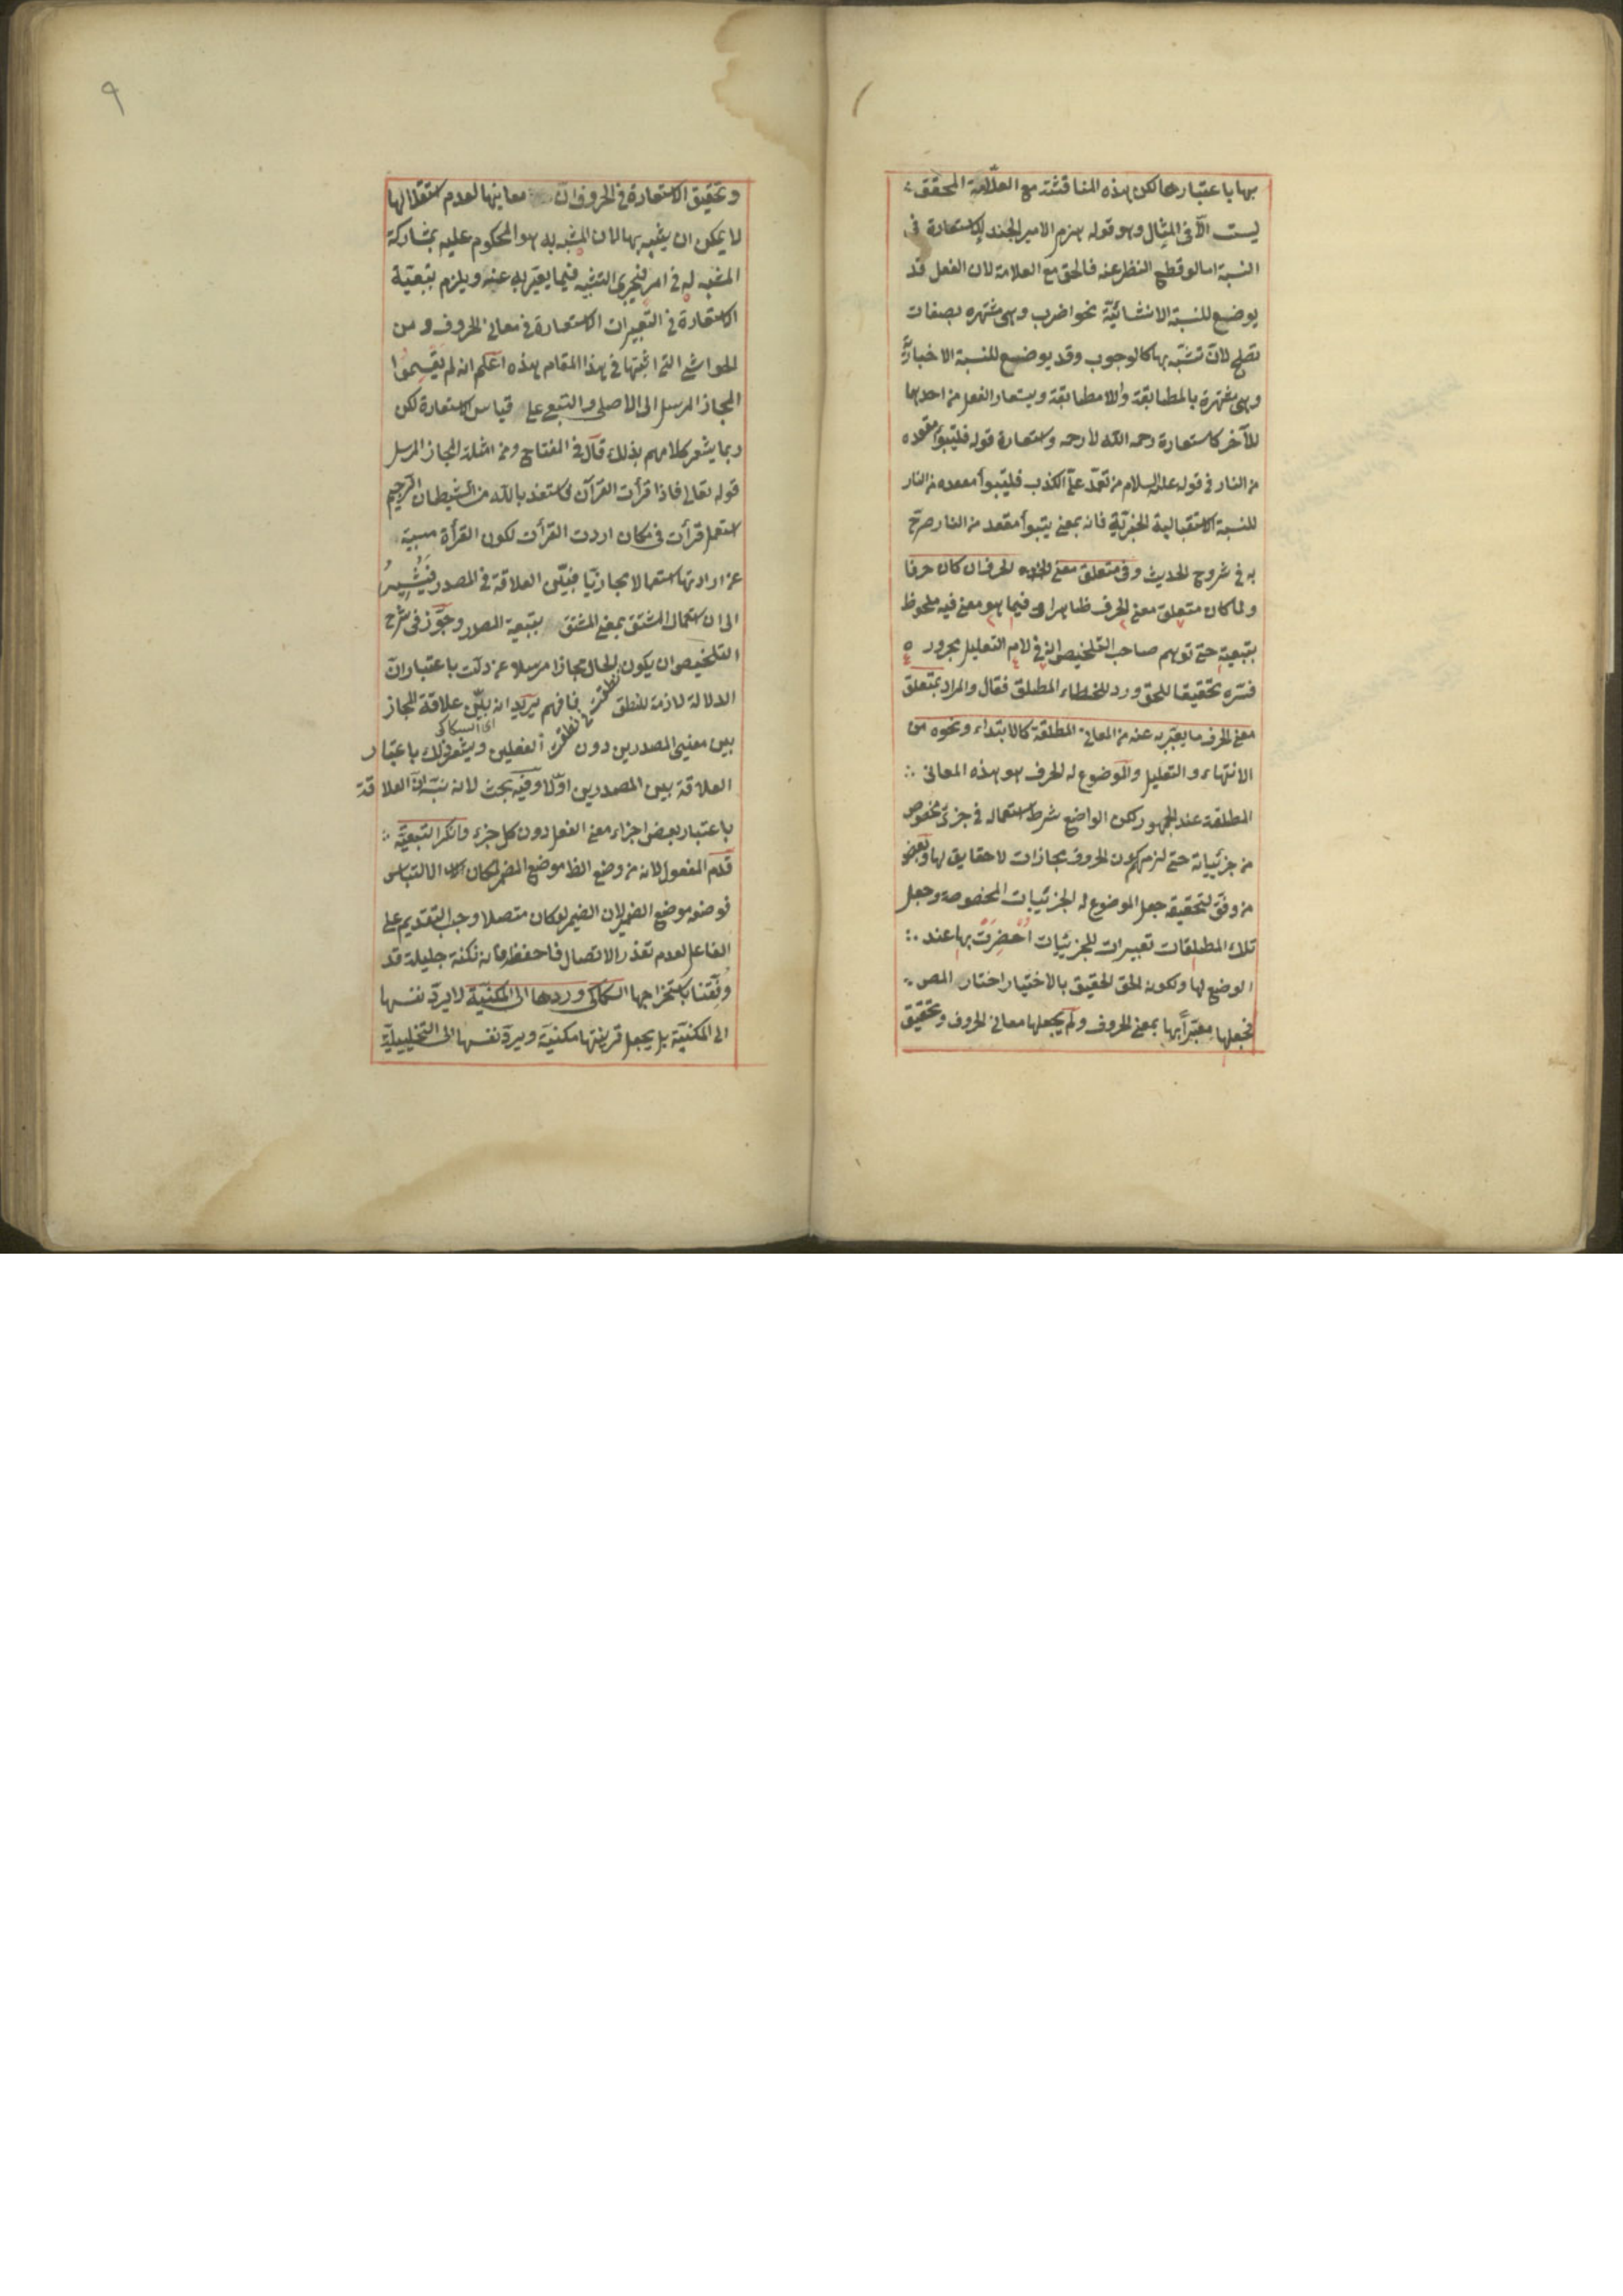 بها باعتبارها لكن هذه المناقشة مع العلامة المحقق
ليست الا في المثال وهو قوله هزم الامير الجند لاستعارة في
النسبة اما لو قطع النظر عنه فالحق مع العلامة لان الفعل قد
يوضع للنسبة الانشائية نحو اضرب وهى مشتهره بصفات
تصلح لان تشبه بها كالوجوب وقد يوضع للنسبة الاخبارية
وهى مشهرة بالمطابقة واللامطابقة ويستعار الفعل من احدهما
للآخر كاستعارة رحمه الله لارحمه واستعارة قوله فليتبوأ مقعده
من النار في قوله عليه السلام من تعمد علىّ الكذب فليتبوأ مقعده من النار
للنسبة الاستقبالية الخبرية فانه بمعنى يتبوأ مقعد من النار صرح
به في شروح الحديث وفى متعلق معنى الحرف ان كان حرفا
ولما كان متعلق معنى الحرف ظاهرا فى فيما هو معنى فيه ملحوظ
بتبعيته حتى توهم صاحب التلخيص انه في لام التعليل مجروره
فسره تحقيقا للحق ورد للخطاء المطلق فقال والمراد بمتعلق
معنى الحرف ما يعبر به عنه من المعانى المطلقة كالابتداء ونحوه من
الانتهاء والتعليل والموضوع له للحرف هو هذه المعانى
المطلقة عند الجمهور لكن الواضع شرط استعماله في جزئ مخصوص
من جزئياته حتى لزمهم كون الحروف مجازات لا حقايق لها وبعض
من وفق لتحقيقه جعل الموضوع له الجزئيات المخصوصة وجعل
تلك المطلقات تعبيرات للجزئيات احضرت بها عند
الوضع لها ولكونه الحق الحقيق بالاختيار اختار المص
فجعلها معبرا بها بمعنى الحروف ولم يجعلها معانى الحروف وتحقيق
٩
وتحقيق الاستعارة في الحروف ان معانيها لعدم استقلالها
لا يمكن ان يشبه بها لان المشبه به هو المحكوم عليه بمشاركة
المشبه له في امر فيجرى التشبيه فيما يعبر به عنه ويلزم بتبعية
الاستعارة في التعبيرات الاستعارة في معانى الحروف ومن
الحواشى التى اثبتها في هذا المقام هذه اعلم انه لم يقسموا
المجاز المرسل الى الاصلى والتبعى على قياس الاستعارة لكن
ربما يشعر كلامهم بذلك قال في المفتاح ومن امثلة المجاز المرسل
قوله تعالى فاذا قرأت القرآن فاستعذ بالله من الشيطان الرجيم
استعمل قرأت في مكان اردت القرأت لكون القرأة مسببة
عن ارادتها استعمالا مجازيا فبين العلاقة في المصدر فيشير
الى ان استعمال المشتق بمعنى المشتق بتبعية المصدر وجوز في شرح
التلخيص ان يكون نطقت الحال مجازا مرسلا عن دلت باعتبار ان
الدلالة لازمة للنطق فافهم يريد انه بين علاقة المجاز
اى السكاكى
بين معنيى المصدرين دون الفعلين ويشعر ذلك باعتبار
العلاقة بين المصدرين اولا وفيه بحث لانه نبه ان العلاقة
باعتبار بعض اجزاء معنى الفعل دون كل جزء وانكر التبعية
قدم المفعول لانه من وضع الظ موضع المضمر لمكان الالتباس
فوضعه موضع الضمير لان الضمير لو كان متصلا وجب التقديم على
الفاعل لعدم تعذر الاتصال فاحفظ فانه نكتة جليلة قد
وفقنا باستخراجها السكاكى وردها الى المكنية لا يرد نفسها
الى المكنية بل يجعل قرينتها مكنية ويرد نفسها الى التخييلية